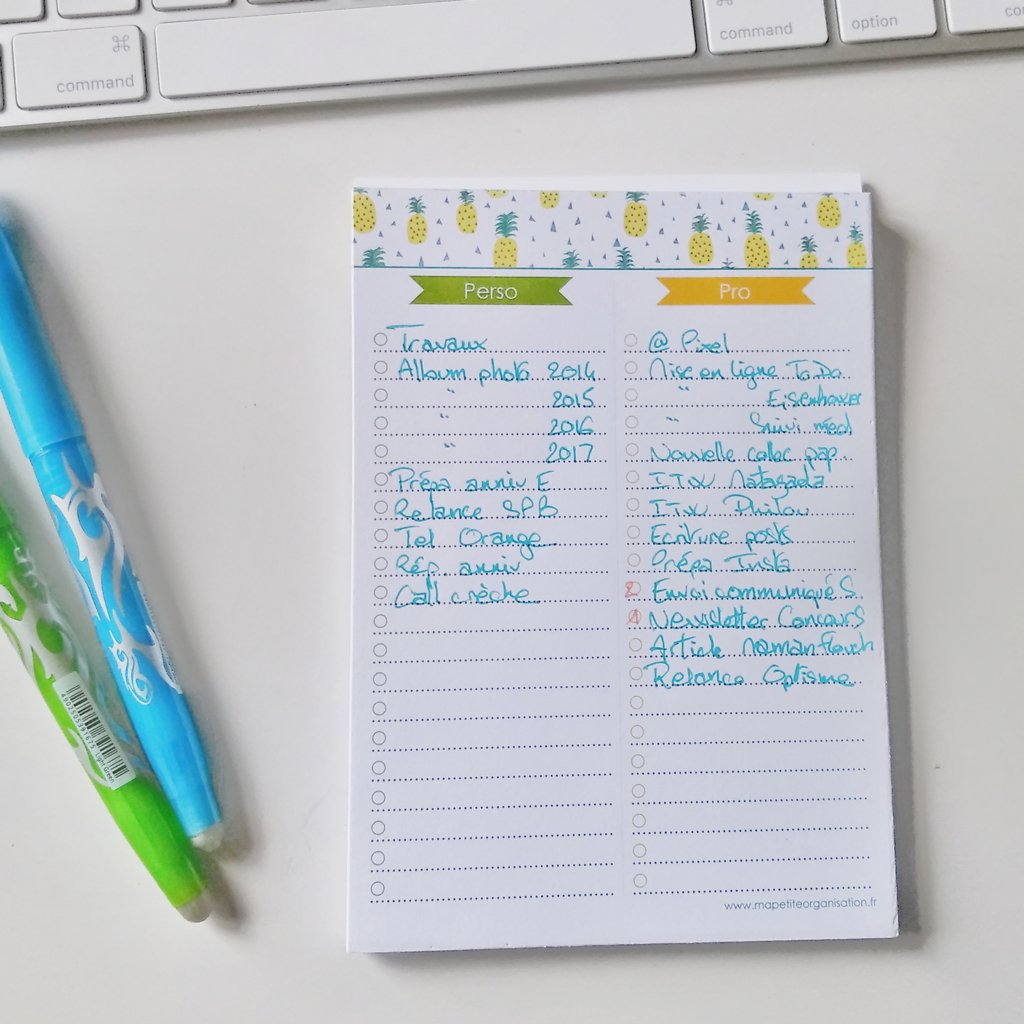 ⌘
command
⌘
command
option
Perso
Travaux
Album photo 2014
" 2015
" 2016
" 2017
Prépa anniv E
Relance SPB
Tel Orange
Rép. anniv
Call crèche
Pro
@ Pixel
Mise en ligne To Do
" Eisenhower
" Suivi méd
Nouvelle collec pap.
ITW
ITW
Ecriture posts
Prépa Insta
2 Envoi communiqué S.
1 Newsletter Concours
Article
Relance Optisme
www.mapetiteorganisation.fr
4902505391675 Light Green